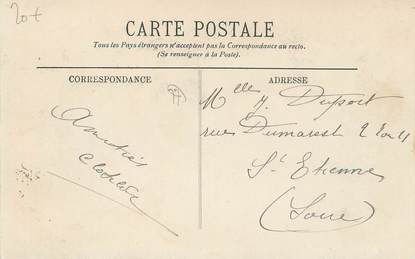 20+
CARTE POSTALE
Tous les Pays étrangers n'acceptent pas la Correspondance au recto.
(Se renseigner à la Poste).
CORRESPONDANCE
ADRESSE
Amitiés
Clotilde
Mlle H. Duport
rue Dumarest
St Etienne
(Loire)